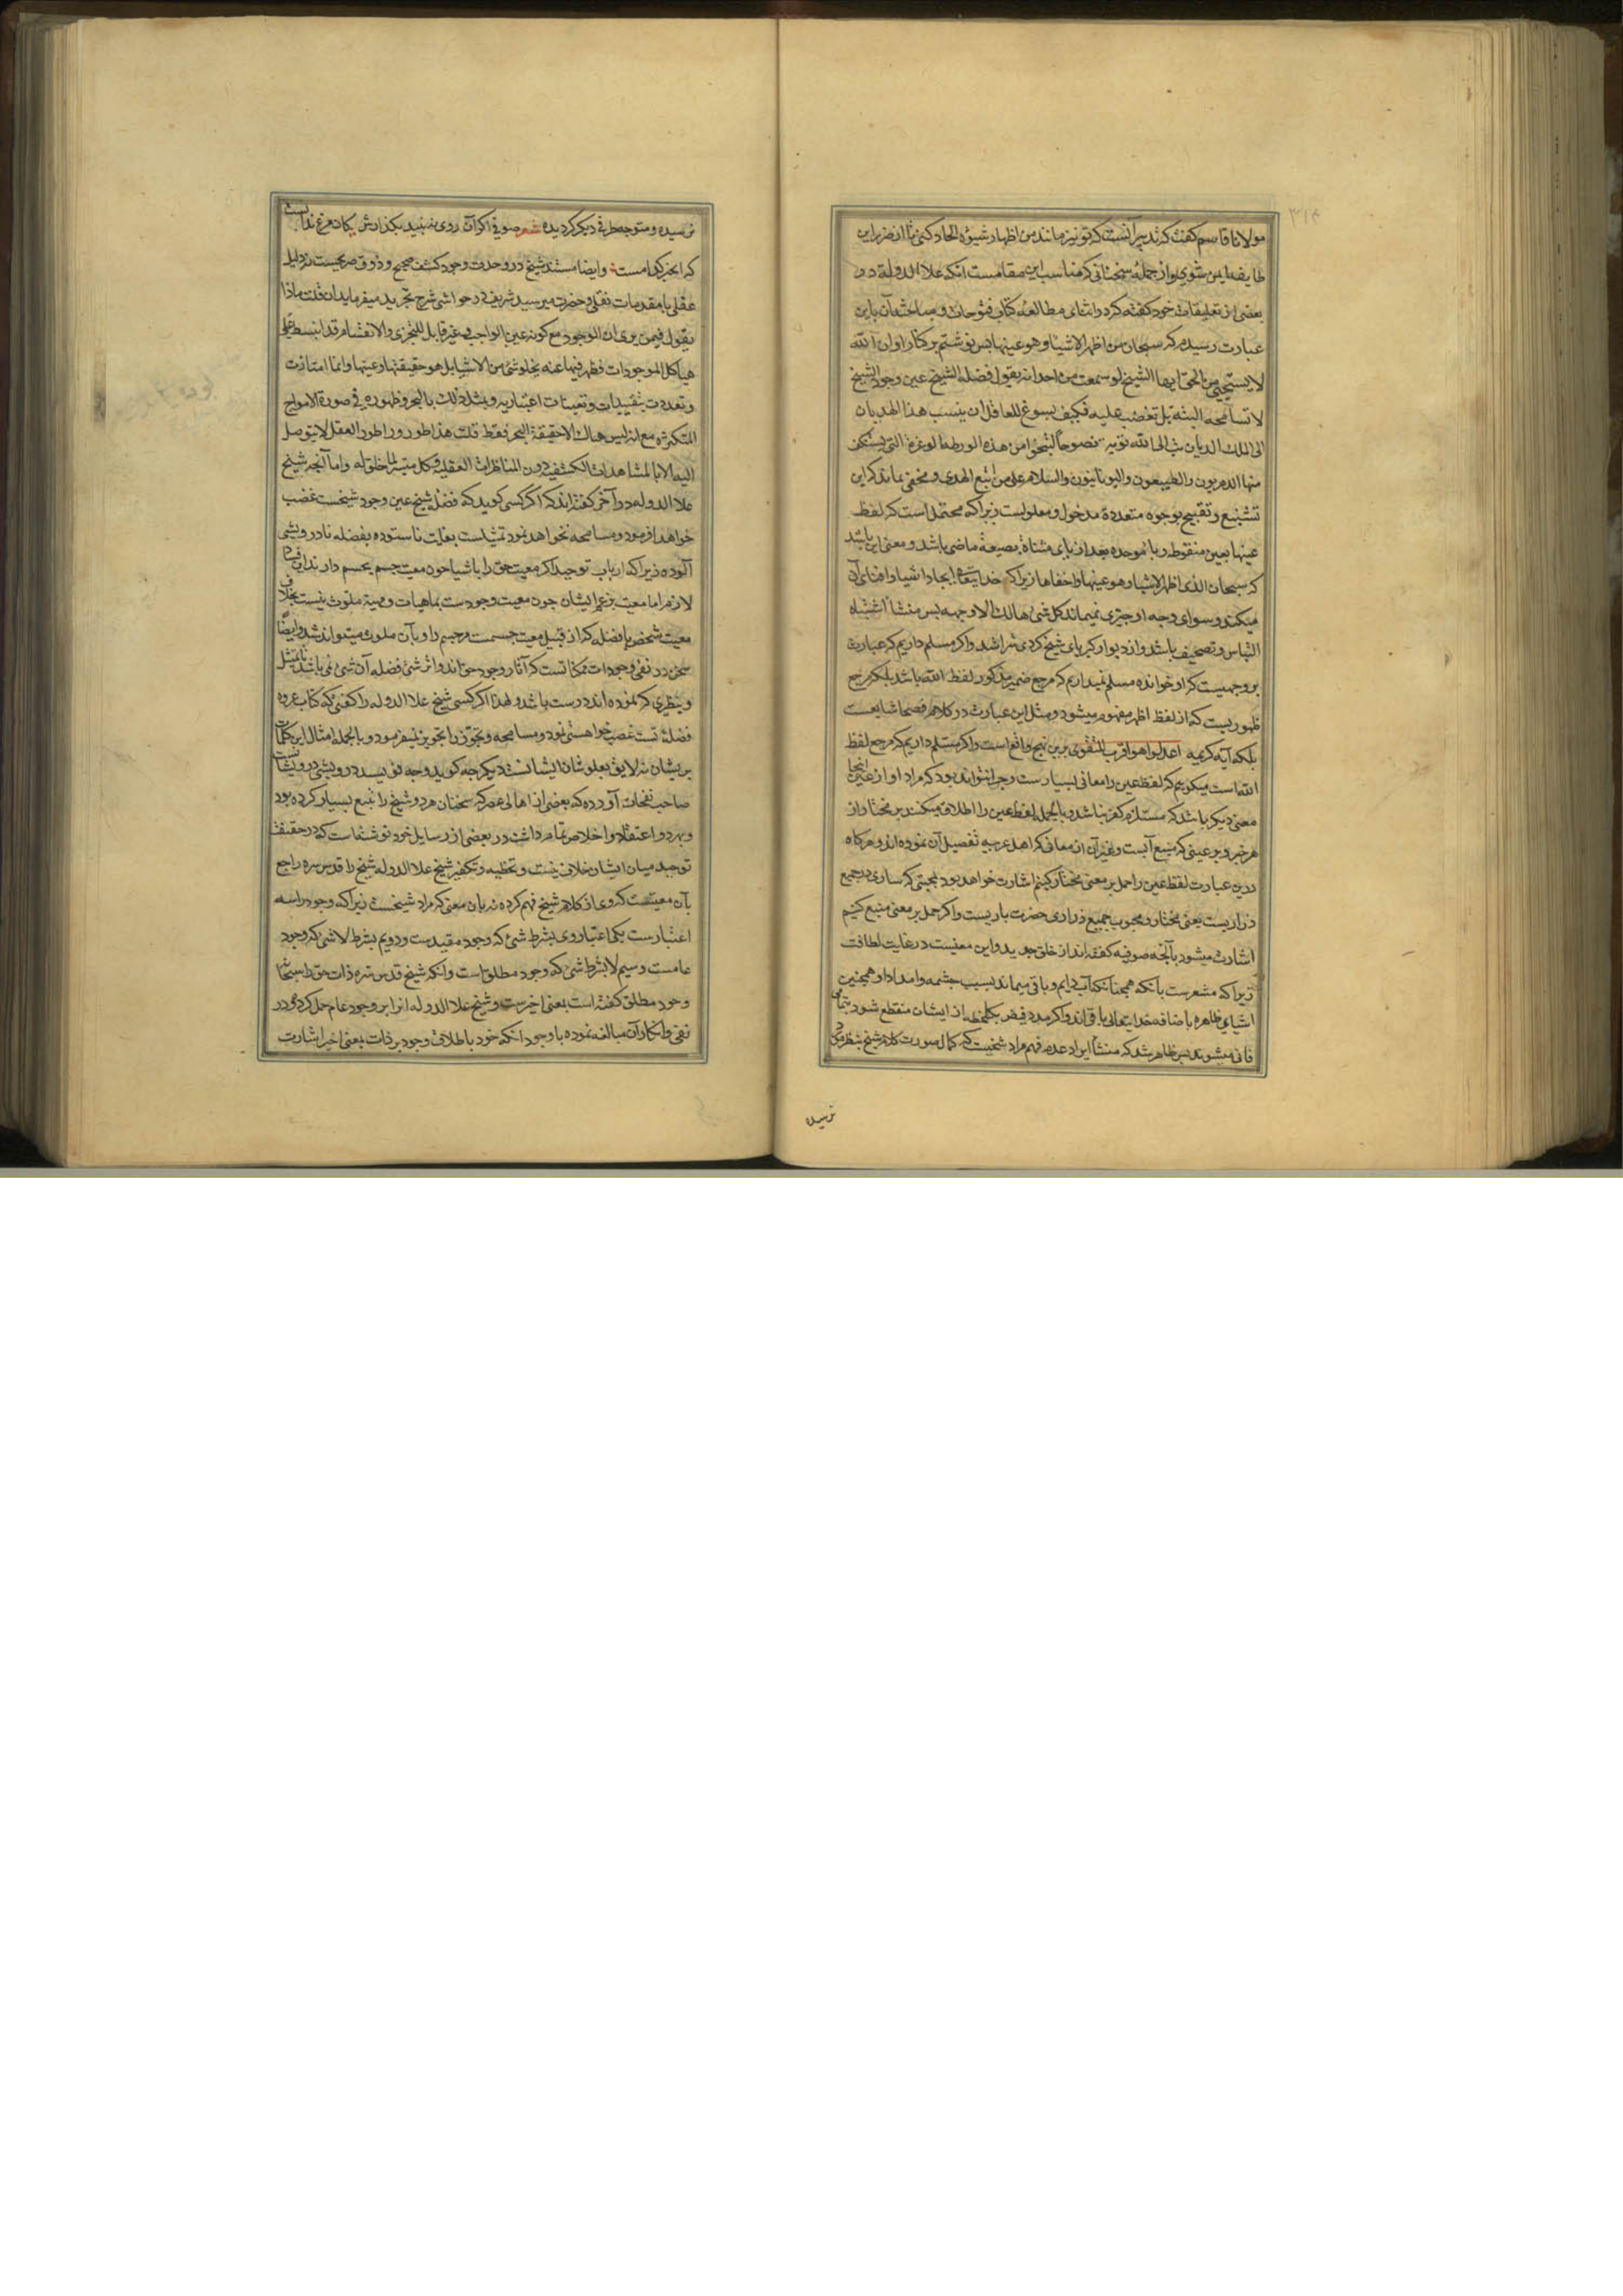 ۳۱۴
مولانا قاسم کفت که تدبیر آنست که تو نیز مانند من اظهار شیوه الحاد کنی تا از ضرر این
طایفه ایمن شوی و از جمله سخنانی که مناسب این مقامست انکه علاالدوله در
بعضی از تعلیقات خود کفته که در اثنای مطالعه کتاب فتوحات و مباحثه آن باین
عبارت رسیدم که سبحان من اظهر الاشیاء وهو عینها پس نوشتم بر کنار او ان الله
لا یستحیی من الحق ایها الشیخ لو سمعت من احد انه یقول فضلة الشیخ عین وجود الشیخ
لا تسامحه البته بل تغضب علیه فکیف یسوغ للعاقل ان ینسب هذا الهدیان
الی الملک الدیان تب الی الله توبة نصوحا لتنجوا من هذه الورطة الوعرة التی یستنکف
منها الدهریون والطبیعیون والیونانیون والسلام علی من اتبع الهدی و مخفی نماند که این
تشنیع و تقبیح بوجوه متعدده مدخول و معلولست زیرا که محتمل است که لفظ
عینها بعین منقوطه و باء موحده بعد از یای مثناة بصیغه ماضی باشد و معنی این باشد
که سبحان الذی اظهر الاشیا و هو غیبها واخفاها زیرا که خدایتعالی ایجاد اشیا و افنای آن
میکند و سوای وجه او چیزی نمیماند کل شئ هالک الا وجهه پس منشا اشتباه
التباس و تصحیف باشد و از دیوار کبریای شیخ کردی نتراشد و اکر مسلم داریم که عبارت
بر وجهیست که او خوانده مسلم نمیداریم که مرجع ضمیر مذکور لفظ الله باشد بلکه مرجع
ظهوریست که از لفظ اظهر مفهوم میشود و مثل این عبارت در کلام فصحا شایعست
بلکه آیه کریمه اعدلوا هو اقرب للتقوی برین نهج واقع است و اکر مسلم داریم که مرجع لفظ
الله است میکوییم که لفظ عین را معانی بسیارست و چرا نتواند بود که مراد او از عین اینجا
معنی دیکر باشد که مستلزم کفر نباشد و بالجمله لفظ عین را اطلاق میکنند بر مختار از
هر خیر و بر عینی که منبع آبست و غیر آن از معانی که اهل عربیه تفصیل آن نموده اند و هرکاه
درین عبارت لفظ عین را حمل بر معنی مختار کنیم اشارت خواهد بود بمحبتی که ساری در جمیع
ذراریست یعنی مختار و محبوب جمیع ذراری حضرت باریست و اکر حمل بر معنی منبع کنیم
اشارت میشود بآنچه صوفیه کفته اند از خلق جدید و این معنیست در غایت لطافت
زیرا که مشعرست بانکه همچنانکه آب دایم و باقی میماند بسبب چشمه و امداد او همچنین
اشیای ظاهره باضافه خدایتعالی باقی اند و اکر مدد فیض یکلحظه از ایشان منقطع شود بتمامی
فانی میشوند پس ظاهر شد که منشا ایراد عدم فهم مراد شیخست که کمال صورت کلام شیخ بنظر
نرسیده
نرسیده و متوجه طرفی دیکر کردیده شعر صوفی اکر آن روی نه بیند بکذارش یکان مرغ ندانست
که انجیر کدامست و ایضا مستند شیخ در وحدت وجود کشف صحیح و ذوق صریحست نه دلیل
عقلی یا مقدمات نقلی و حضرت میر سید شریف در حواشی شرح تجرید میفرماید ان قلت ماذا
یقول فیمن یری ان الوجود مع کونه عین الواجب و غیر قابل للتجزی والانقسام قد انبسط علی
هیاکل الموجودات فظهر فیها عنه یخلو شئ من الاشیا بل هو حقیقتها و عینها و انما امتازت
و تعددت بتقییدات و تعینات اعتباریه و یمثل ذلک بالبحر و ظهوره فی صورة الامواج
المتکثرة مع انه لیس هناک الا حقیقة البحر فقط قلت هذا طور وراء طور العقل لا یتوصل
الیه الا بالمشاهدات الکشفیه دون المناظرات العقلیه و کل میسر لما خلق له و اما آنچه شیخ
علاالدوله در آخر کفته اند که اکر کسی کوید که فضله شیخ عین وجود شیخست غضب
خواهد فرمود و مسامحه نخواهد نمود تمثیلست بغایت ناستوده بفضله نادرویشی
آلوده زیرا که ارباب توحید اکر معیت حق را باشیا چون معیت جسم بجسم دارند این فساد
لازم اما معیت بزعم ایشان چون معیت وجودست بماهیات و مهیة ملوث نیست بخلاف
معیت شخص با فضله که از قبیل معیت جسمست و جسم را و بآن ملوث میتواند شد و ایضاً
سخن در نفی وجودات ممکناتست که آثار وجود حق اند و اثر شئ فضله آن شئ نمی باشد تا تمثیل
و نظیری که نموده اند درست باشد و لهذا اکر کسی شیخ علاالدوله را کفتی که کتاب عروه
فضلۀ تست غضب خواهستی نمود و مسامحه و تجوز را تجویز نمیفرمود و بالجمله امثال این کلمات
پریشان نه لایق بعلو شان ایشانست دیکر چه کوید و چه نویسد درویشی درویشانست
صاحب نفحات آورده که بعضی از اهالی عصر که سخنان هر دو شیخ را تتبع بسیار کرده بود
و بهردو اعتقاد و اخلاص تمام داشت در بعضی از رسایل خود نوشته است که در حقیقت
توحید میان ایشان خلاف نیست و تخطیه و تکفیر شیخ علاالدوله شیخ را قدس سره راجع
بآن معنیست که وی از کلام شیخ فهم کرده نه بآن معنی که مراد شیخست زیرا که وجود را سه
اعتبارست یکی اعتبار وی بشرط شئ که وجود مقیدست و دویم بشرط لا شئ که وجود
عامست و سیم لا بشرط شئ که وجود مطلق است و انکه شیخ قدس سره ذات حق را سبحانه
وجود مطلق کفته است بمعنی اخیرست و شیخ علاالدوله انرا بر وجود عام حمل کرده و در
نفی و انکار آن مبالغه نموده با وجود انکه خود باطلاق وجود بر ذات بمعنی اخیر اشارت